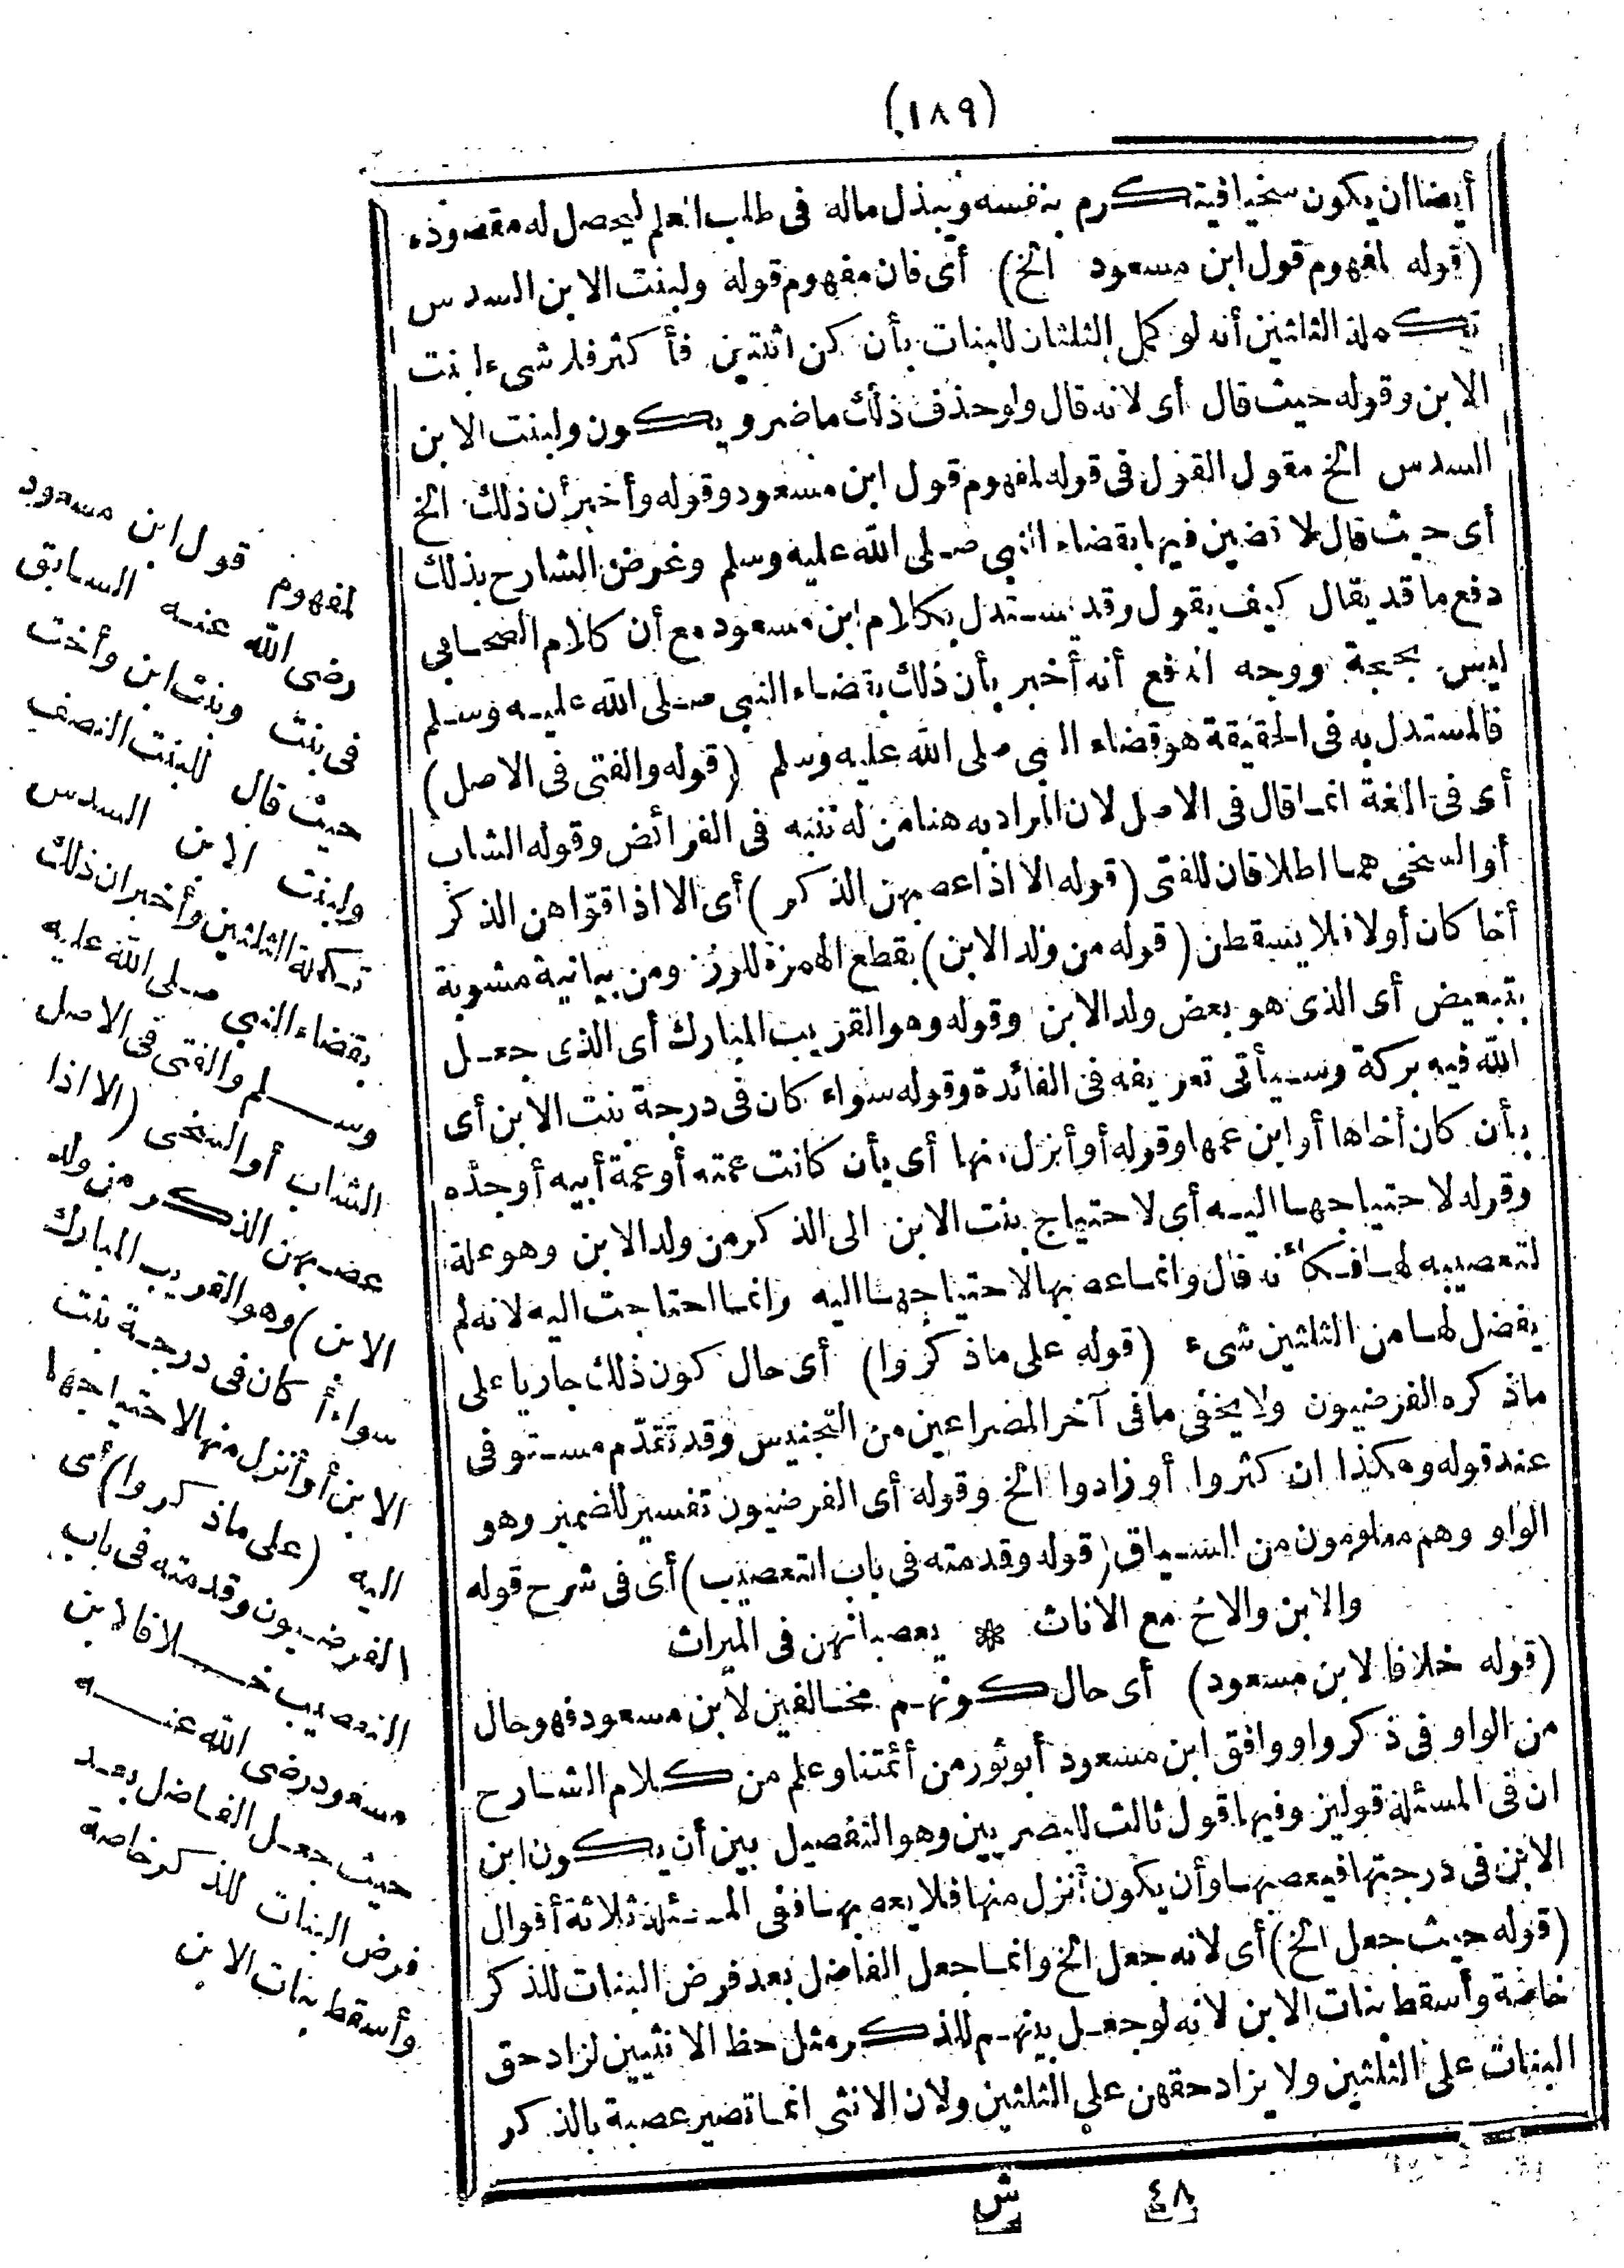 (١٨٩)
أيضا أن يكون سخيا فيتكرم بنفسه ويبذل ماله فى طلب العلم ليحصل له مقصوده
(قوله لمفهوم قول ابن مسعود الخ) أى فان مفهوم قوله ولبنت الابن السدس
تكملة الثلثين أنه لو كمل الثلثان للبنات بأن كن اثنتين فأكثر فلا شىء لبنت
الابن وقوله حيث قال أى لانه قال ولو حذف ذلك ما ضر ويكون ولبنت الابن
السدس الخ مقول القول فى قوله لمفهوم قول ابن مسعود وقوله وأخبر أن ذلك الخ
أى حيث قال لاقضين فيها بقضاء النبى صلى الله عليه وسلم وغرض الشارح بذلك
دفع ما قد يقال كيف يقول وقد يستدل بكلام ابن مسعود مع أن كلام الصحابى
ليس بحجة ووجه الدفع أنه أخبر بأن ذلك بقضاء النبى صلى الله عليه وسلم
فالمستدل به فى الحقيقة هو قضاء النبى صلى الله عليه وسلم (قوله والفتى فى الاصل)
أى فى اللغة انما قال فى الاصل لان المراد به هنا من له تنبه فى الفرائض وقوله الشاب
أو السخى هما اطلاقان للفتى (قوله الا اذا عصبهن الذكر) أى الا اذا قوّاهن الذكر
أخا كان أو لا فلا يسقطن (قوله من ولد الابن) بقطع الهمزة للوزن ومن بيانية مشوبة
بتبعيض أى الذى هو بعض ولد الابن وقوله وهو القريب المبارك أى الذى جعل
الله فيه بركة وسيأتى تعريفه فى الفائدة وقوله سواء كان فى درجة بنت الابن أى
بأن كان أخاها أو ابن عمها وقوله أو أنزل منها أى بأن كانت عمته أو عمة أبيه أو جدّه
وقوله لاحتياجها اليه أى لاحتياج بنت الابن الى الذكر من ولد الابن وهو علة
لتعصيبه لها فكأنه قال وانما عصبها لاحتياجها اليه وانما احتاجت اليه لانه لم
يفضل لها من الثلثين شىء (قوله على ما ذكروا) أى حال كون ذلك جاريا على
ما ذكره الفرضيون ولا يخفى ما فى آخر المصراعين من التجنيس وقد تقدّم مستوفى
عند قوله وهكذا ان كثروا أو زادوا الخ وقوله أى الفرضيون تفسير للضمير وهو
الواو وهم معلومون من السياق (قوله وقدمته فى باب التعصيب) أى فى شرح قوله
والابن والاخ مع الاناث * يعصبانهن فى الميراث
(قوله خلافا لابن مسعود) أى حال كونهم مخالفين لابن مسعود فهو حال
من الواو فى ذكروا ووافق ابن مسعود أبو ثور من أئمتنا وعلم من كلام الشارح
ان فى المسئلة قولين وفيها قول ثالث للبصريين وهو التفصيل بين أن يكون ابن
الابن فى درجتها فيعصبها وأن يكون أنزل منها فلا يعصبها ففى المسئلة ثلاثة أقوال
(قوله حيث جعل الخ) أى لانه جعل الخ وانما جعل الفاضل بعد فرض البنات للذكر
خاصة وأسقط بنات الابن لانه لو جعل بينهم للذكر مثل حظ الانثيين لزاد حق
البنات على الثلثين ولا يزاد حقهن على الثلثين ولان الانثى انما تصير عصبة بالذكر
لمفهوم قول ابن مسعود
رضى الله عنه السابق
فى بنت وبنت ابن وأخت
حيث قال للبنت النصف
ولبنت الابن السدس
تكملة الثلثين وأخبر ان ذلك
بقضاء النبى صلى الله عليه
وسلم والفتى فى الاصل
الشاب أو السخى (الا اذا
عصبهن الذكر من ولد
الابن) وهو القريب المبارك
سواء أكان فى درجة بنت
الابن أو أنزل منها لاحتياجها
اليه (على ما ذكروا) أى
الفرضيون وقدمته فى باب
التعصيب خلافا لابن
مسعود رضى الله عنه
حيث جعل الفاضل بعد
فرض البنات للذكر خاصة
وأسقط بنات الابن
٤٨ ش